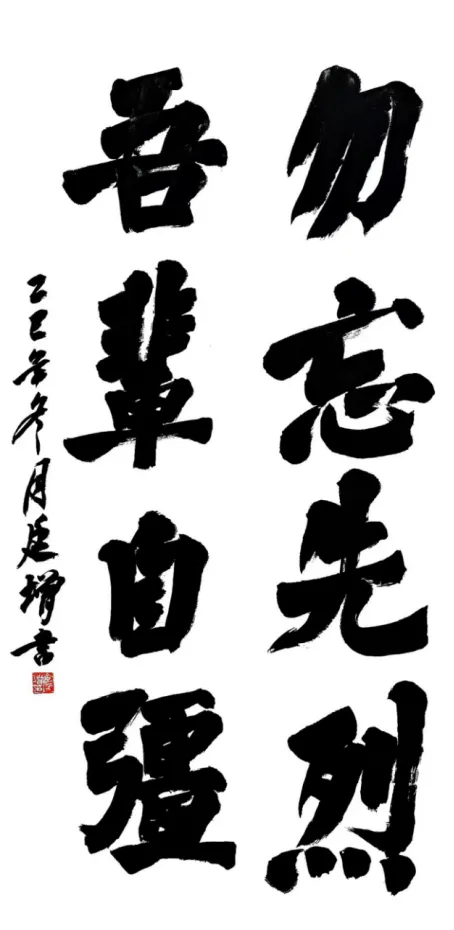 勿忘先烈
吾輩自彊
乙巳年冬月廷增书